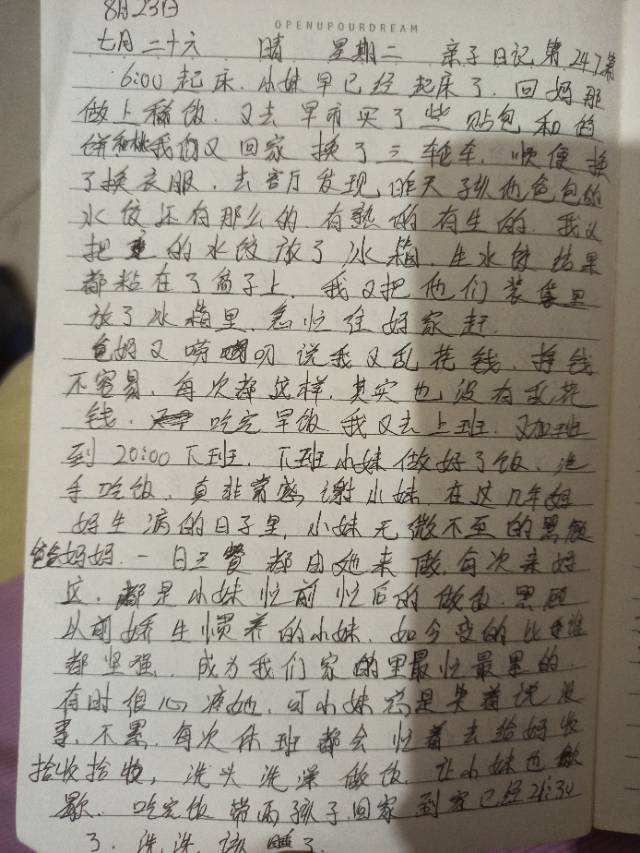 8月23日
OPENUPYOURDREAM
七月二十六 晴 星期二 亲子日记第247篇
6:00起床.小妹早已经起床了.回妈那
做上稀饭.又去早市买了些贴包和
饼和桃我们又回家换了三轮车.顺便换
了换衣服.去客厅发现,昨天孩他爸包的
水饺还有那么的.有熟的有生的.我又
把的水饺放了冰箱.生水饺结果
都粘在了盘子上.我又把他们装袋里
放了冰箱里.急忙往妈家赶.
妈又唠叨说我又乱花钱.挣钱
不容易.每次都这样.其实也没有乱花
钱.吃完早饭我又去上班.又加班
到20:00下班.下班小妹做好了饭.洗
手吃饭.真非常感谢小妹.在这几年妈
妈生病的日子里.小妹无微不至的照顾
爸爸妈妈.一日三餐都由她来做.每次来妈
这.都是小妹忙前忙后的做饭.照顾
从前娇生惯养的小妹.如今变的比谁
都坚强.成为我们家的里最忙最累的.
有时很心疼她.可小妹总是笑着说没
事.不累.每次休班都会忙着去给妈收
拾收拾.洗头洗澡做饭.让小妹也歇
歇.吃完饭带两孩子回家到家已经21:30
了.洗洗该睡了.